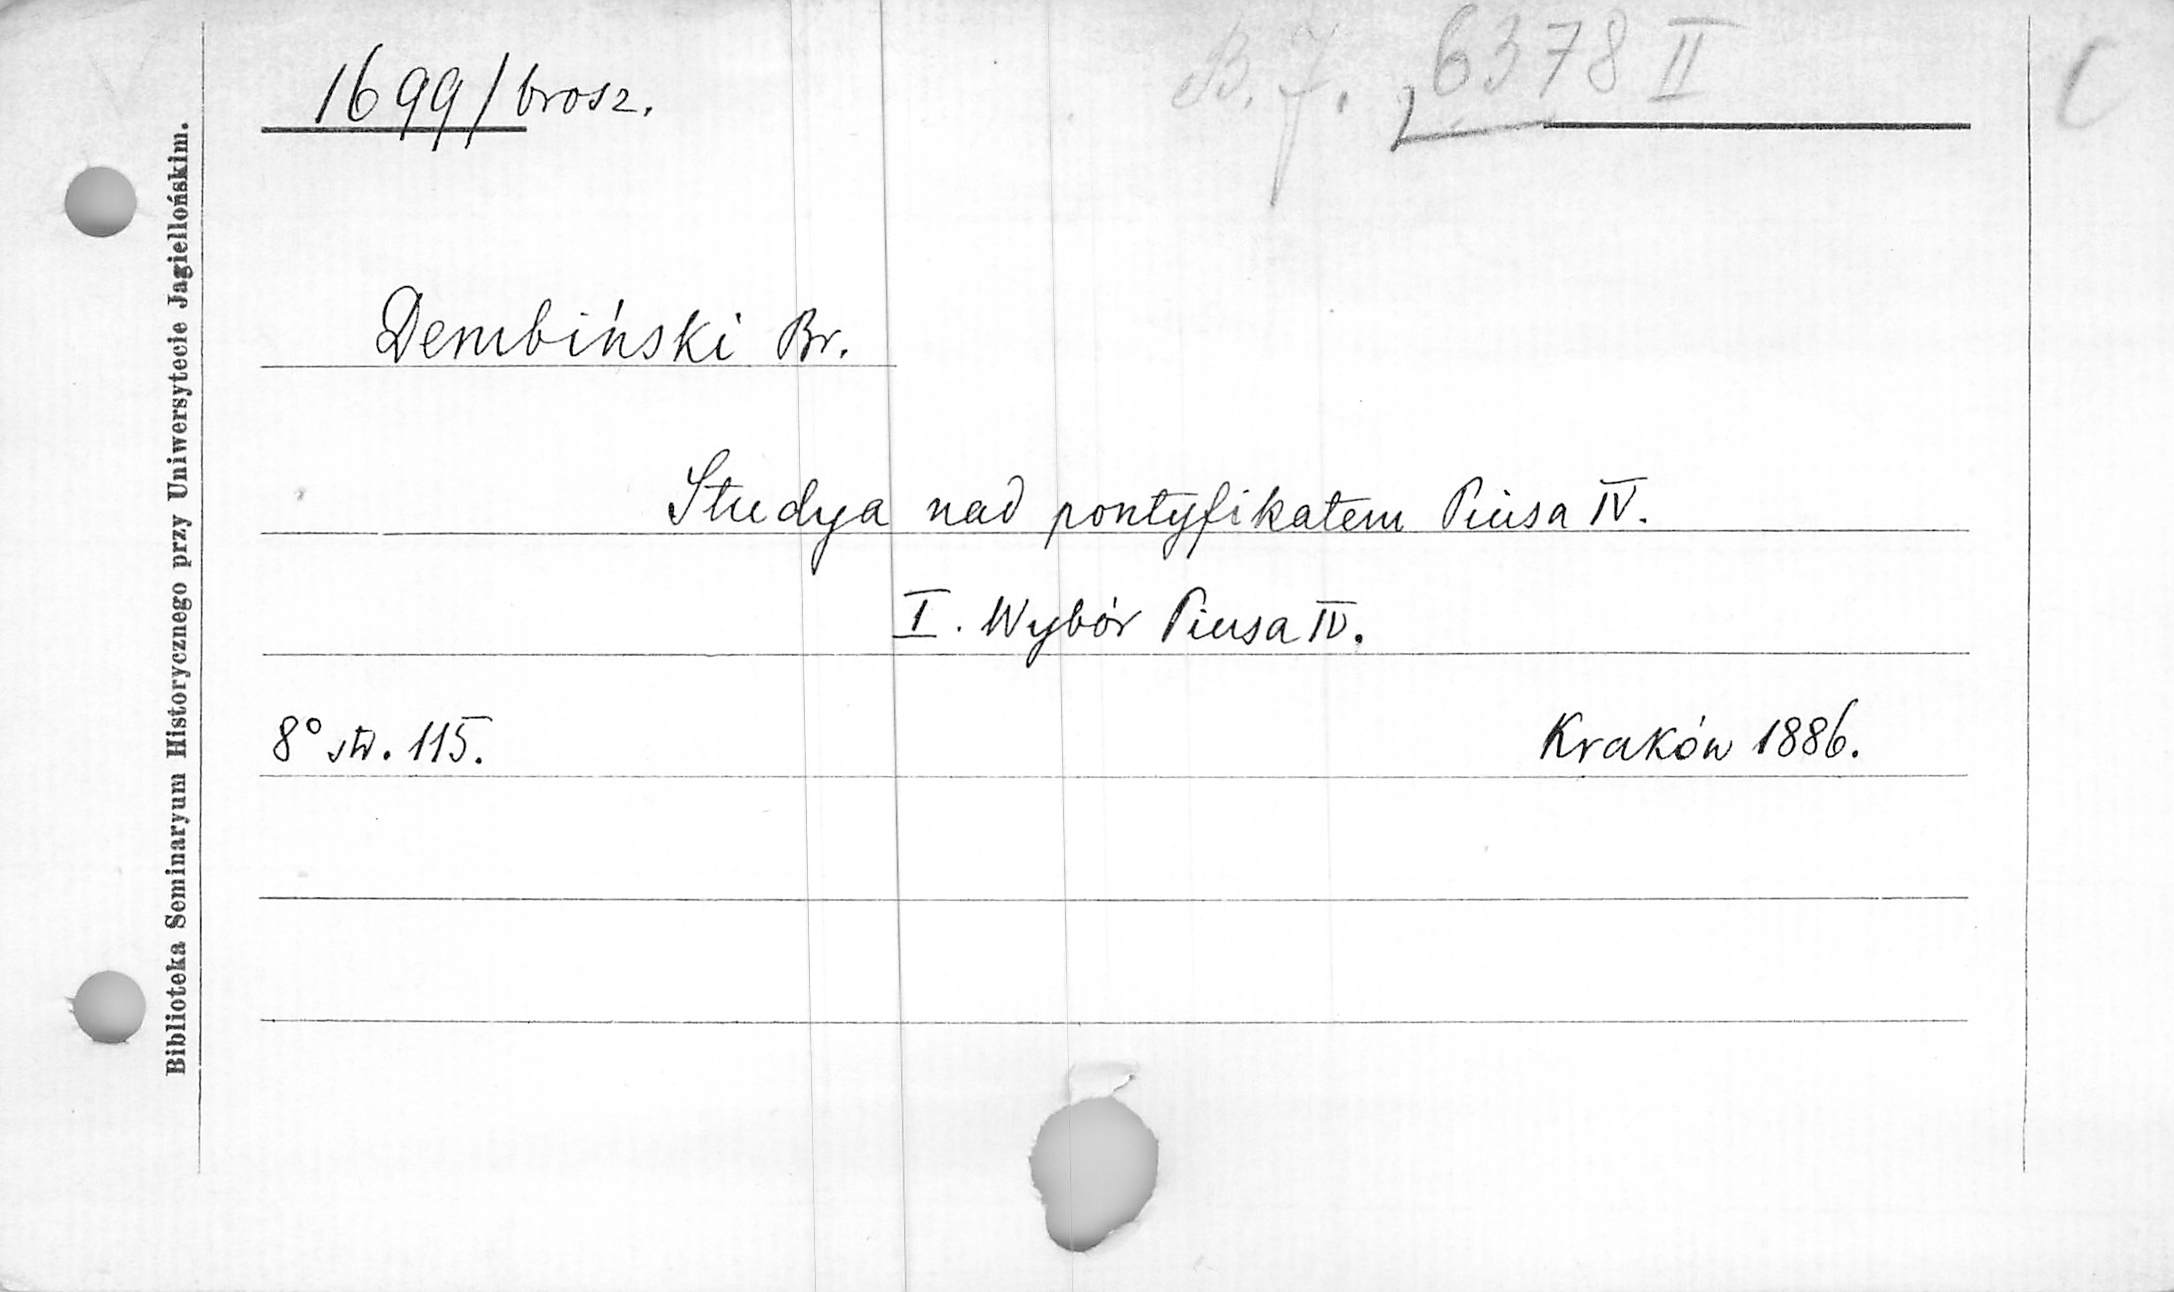 1699/brosz.
B. J. 6378 II
C
Dembiński Br.
Studya nad pontyfikatem Piusa IV.
I. Wybór Piusa IV.
8° str. 115.
Kraków 1886.
Biblioteka Seminaryum Historycznego przy Uniwersytecie Jagiellońskim.